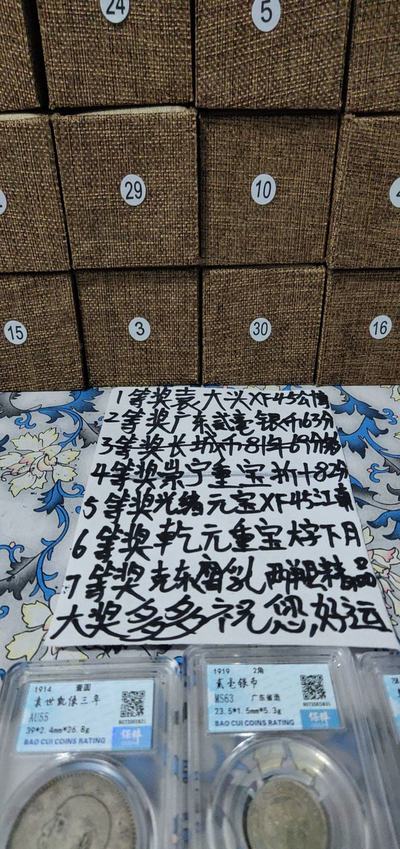 24
5
29
10
15
3
30
16
1等奖袁大头XF45公博
2等奖广东贰毫银币63分
3等奖长城币81年69分
4等奖崇宁重宝折十82分
5等奖光绪元宝XF45江南
6等奖乾元重宝大字下月
7等奖
大奖多多祝您好运
1914 壹圆
袁世凯像三年
AU55
39*2.4mm*26.8g
BAO CUI COINS RATING
1919 2角
贰毫银币
MS63 广东省造
23.5*1.5mm*5.3g
BAO CUI COINS RATING